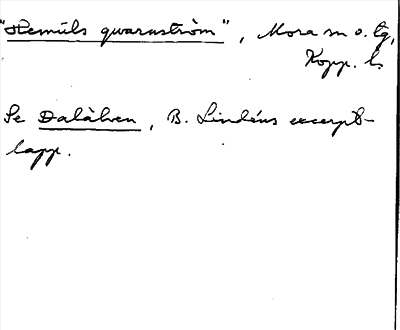 "Hemuls qwarnström", Mora sn o. tg,
Kopp. l.
Se Dalälven, B. Lindéns excerpt-
lapp.